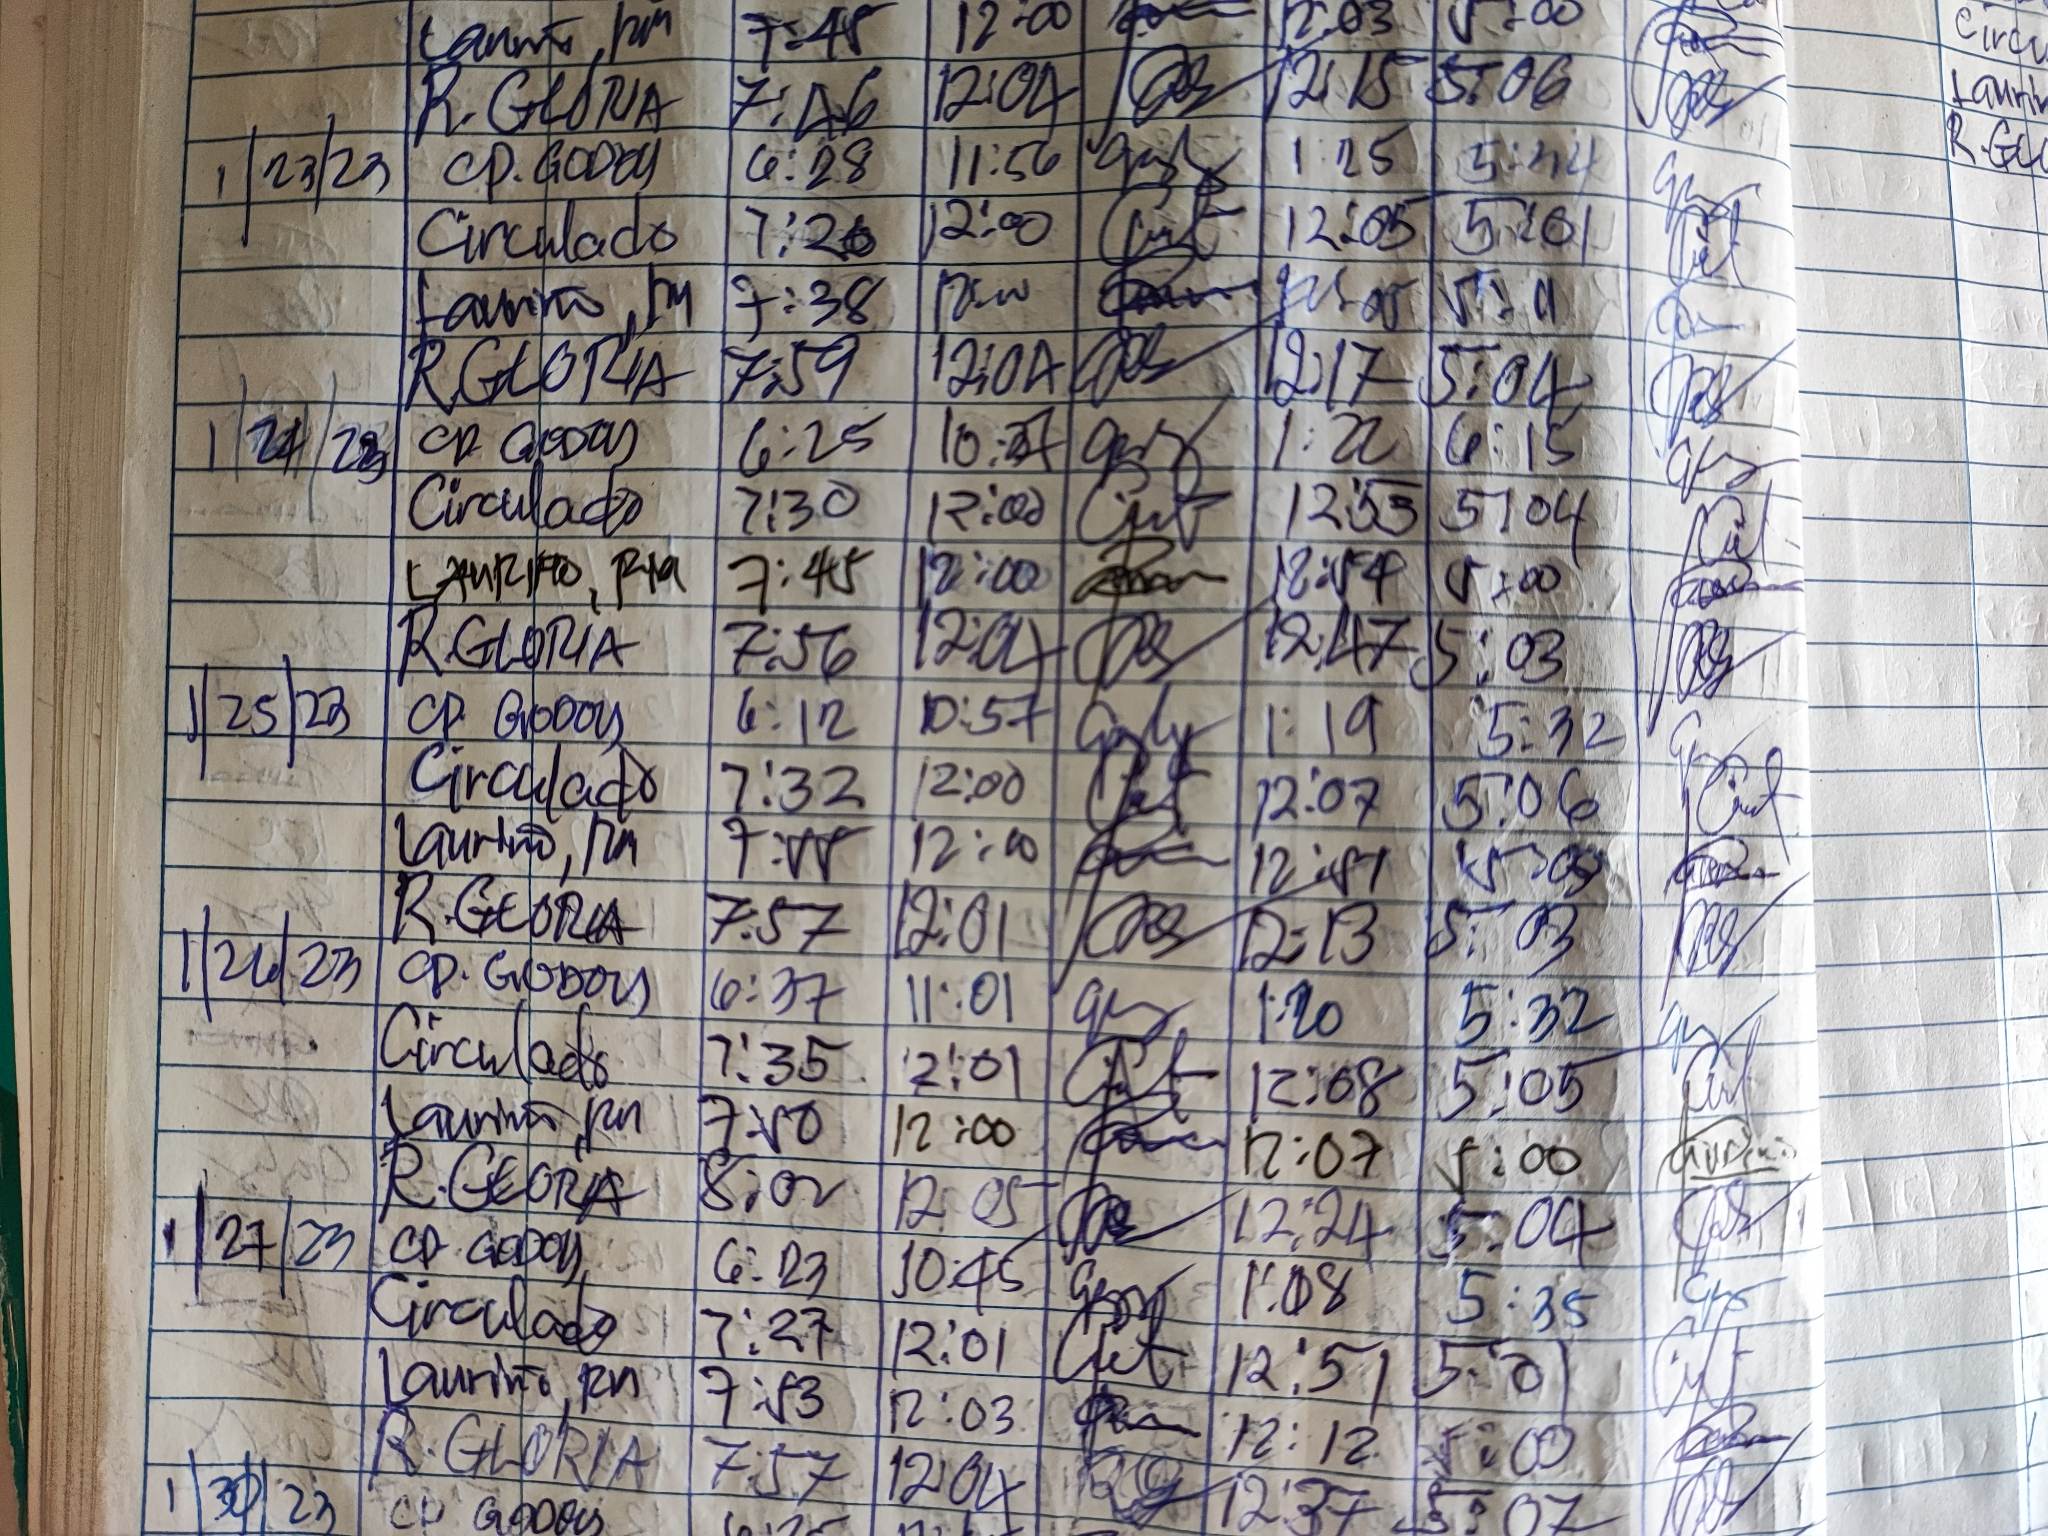 Laurito, RM 7:45 12:00 12:03 5:00
R. GLORIA 7:46 12:04 12:15 5:06
1/23/23 CP. GODOY 6:28 11:56 1:25 5:44
Circulado 7:26 12:00 12:05 5:01
Laurito, RM 7:38 12:00 5:11
R. GLORIA 7:59 12:04 12:17 5:04
1/24/23 CP. GODOY 6:25 1:22 6:15
Circulado 7:30 12:00 12:53 5:04
LAURITO, RM 7:45 12:00 12:54 5:00
R. GLORIA 7:56 12:04 12:47 5:03
1/25/23 CP. GODOY 6:12 10:57 1:19 5:32
Circulado 7:32 12:00 12:07 5:06
Laurito, RM 7:55 12:00 12:51
R. GLORIA 7:57 12:01 12:13 5:03
1/26/23 CP. GODOY 6:37 11:01 1:20 5:32
Circulado 7:35 12:01 12:08 5:05
Laurito, RM 7:50 12:00 12:07 5:00
R. GLORIA 8:02 12:05 12:24 5:04
1/27/23 CP. GODOY 6:23 10:45 1:08 5:35
Circulado 7:27 12:01 12:51 5:01
Laurito, RM 7:53 12:03 12:12 5:00
R. GLORIA 7:57 12:04 12:37 5:07
1/30/23 CP GODOY